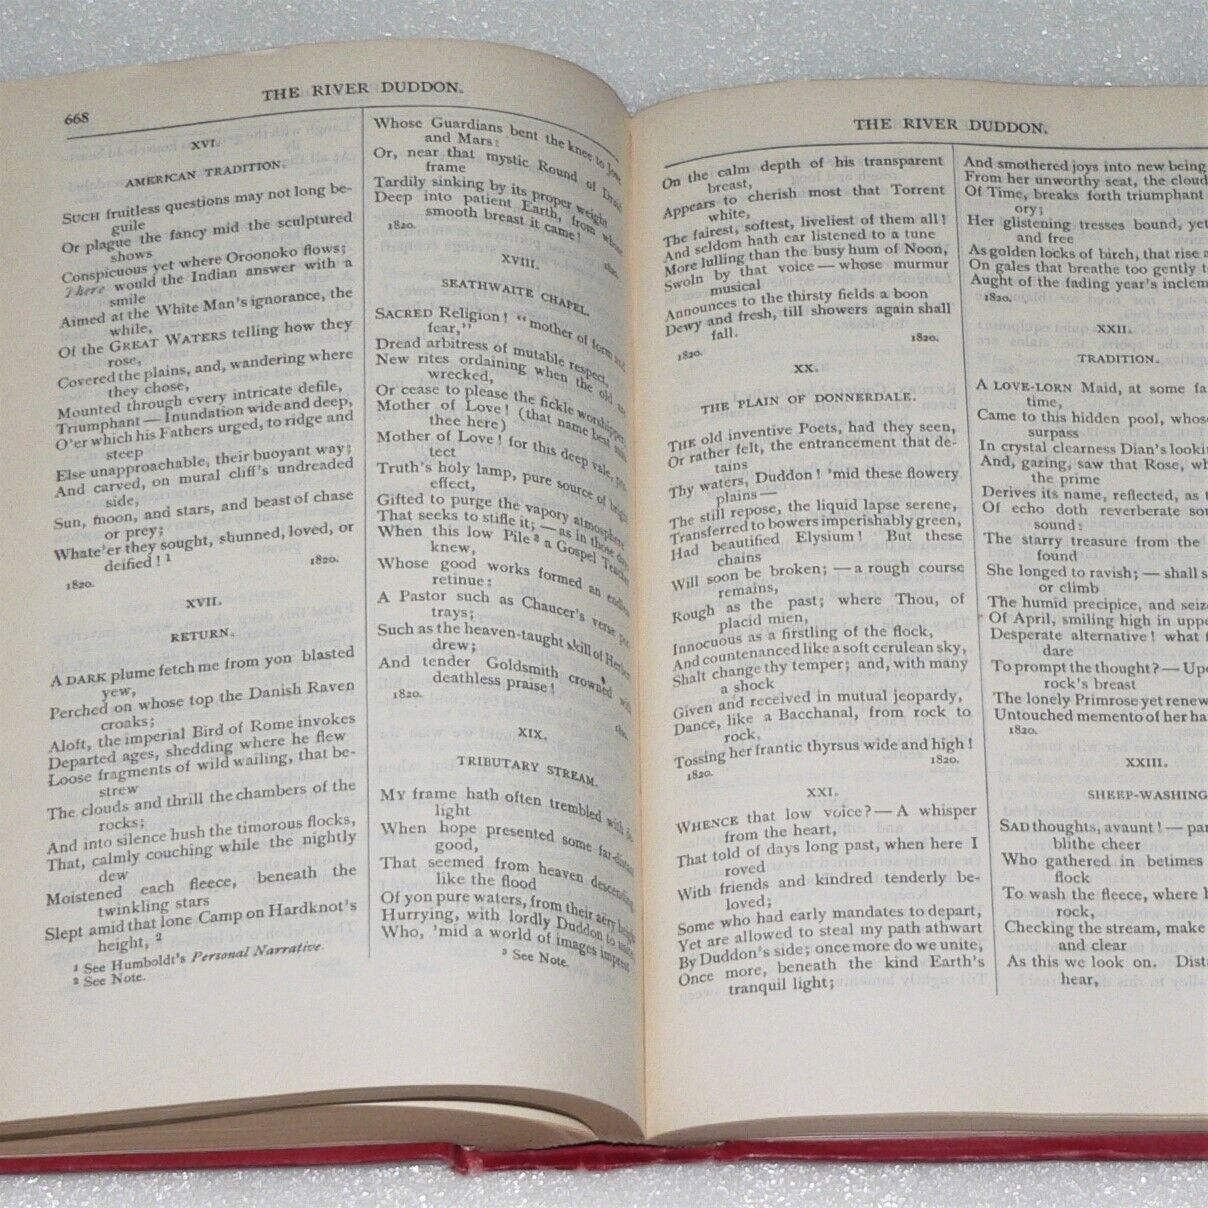 668
THE RIVER DUDDON.
XVI.
AMERICAN TRADITION.
SUCH fruitless questions may not long be-
guile
Or plague the fancy mid the sculptured
shows
Conspicuous yet where Oroonoko flows;
There would the Indian answer with a
smile
Aimed at the White Man's ignorance, the
while,
Of the GREAT WATERS telling how they
rose,
Covered the plains, and, wandering where
they chose,
Mounted through every intricate defile,
Triumphant — Inundation wide and deep,
O'er which his Fathers urged, to ridge and
steep
Else unapproachable, their buoyant way;
And carved, on mural cliff's undreaded
side,
Sun, moon, and stars, and beast of chase
or prey;
Whate'er they sought, shunned, loved, or
deified! ¹
1820. 1820.
XVII.
RETURN.
A DARK plume fetch me from yon blasted
yew,
Perched on whose top the Danish Raven
croaks;
Aloft, the imperial Bird of Rome invokes
Departed ages, shedding where he flew
Loose fragments of wild wailing, that be-
strew
The clouds and thrill the chambers of the
rocks;
And into silence hush the timorous flocks,
That, calmly couching while the nightly
dew
Moistened each fleece, beneath the
twinkling stars
Slept amid that lone Camp on Hardknot's
height, ²
¹ See Humboldt's Personal Narrative.
² See Note.
Whose Guardians bent the knee to Jove
and Mars:
Or, near that mystic Round of Druid
frame
Tardily sinking by its proper weight
Deep into patient Earth, from whose
smooth breast it came!
1820. 1820.
XVIII.
SEATHWAITE CHAPEL.
SACRED Religion! "mother of form and
fear,"
Dread arbitress of mutable respect,
New rites ordaining when the old are
wrecked,
Or cease to please the fickle worshipper,
Mother of Love! (that name best suits
thee here)
Mother of Love! for this deep vale, pro-
tect
Truth's holy lamp, pure source of bright
effect,
Gifted to purge the vapory atmosphere
That seeks to stifle it; — as in those days
When this low Pile ³ a Gospel Teacher
knew,
Whose good works formed an endless
retinue:
A Pastor such as Chaucer's verse por-
trays;
Such as the heaven-taught skill of Herbert
drew;
And tender Goldsmith crowned with
deathless praise!
1820. 1820.
XIX.
TRIBUTARY STREAM.
MY frame hath often trembled with de-
light
When hope presented some far-distant
good,
That seemed from heaven descending,
like the flood
Of yon pure waters, from their aëry height
Hurrying, with lordly Duddon to unite;
Who, 'mid a world of images imprest
³ See Note.
THE RIVER DUDDON.
On the calm depth of his transparent
breast,
Appears to cherish most that Torrent
white,
The fairest, softest, liveliest of them all!
And seldom hath ear listened to a tune
More lulling than the busy hum of Noon,
Swoln by that voice — whose murmur
musical
Announces to the thirsty fields a boon
Dewy and fresh, till showers again shall
fall.
1820. 1820.
XX.
THE PLAIN OF DONNERDALE.
THE old inventive Poets, had they seen,
Or rather felt, the entrancement that de-
tains
Thy waters, Duddon! 'mid these flowery
plains —
The still repose, the liquid lapse serene,
Transferred to bowers imperishably green,
Had beautified Elysium! But these
chains
Will soon be broken; — a rough course
remains,
Rough as the past; where Thou, of
placid mien,
Innocuous as a firstling of the flock,
And countenanced like a soft cerulean sky,
Shalt change thy temper; and, with many
a shock
Given and received in mutual jeopardy,
Dance, like a Bacchanal, from rock to
rock,
Tossing her frantic thyrsus wide and high!
1820. 1820.
XXI.
WHENCE that low voice? — A whisper
from the heart,
That told of days long past, when here I
roved
With friends and kindred tenderly be-
loved;
Some who had early mandates to depart,
Yet are allowed to steal my path athwart
By Duddon's side; once more do we unite,
Once more, beneath the kind Earth's
tranquil light;
And smothered joys into new being
From her unworthy seat, the cloud
Of Time, breaks forth triumphant
ory;
Her glistening tresses bound, yet
and free
As golden locks of birch, that rise
On gales that breathe too gently
Aught of the fading year's
1820.
XXII.
TRADITION.
A LOVE-LORN Maid, at some
time,
Came to this hidden pool, whose
surpass
In crystal clearness Dian's
And, gazing, saw that Rose,
the prime
Derives its name, reflected, as
Of echo doth reverberate
sound:
The starry treasure from the
found
She longed to ravish; — shall
or climb
The humid precipice, and
Of April, smiling high in
Desperate alternative! what
dare
To prompt the thought? —
rock's breast
The lonely Primrose yet
Untouched memento of her
1820.
XXIII.
SHEEP-WASHING
SAD thoughts, avaunt! —
blithe cheer
Who gathered in betimes
flock
To wash the fleece, where
rock,
Checking the stream, make
and clear
As this we look on.
hear,